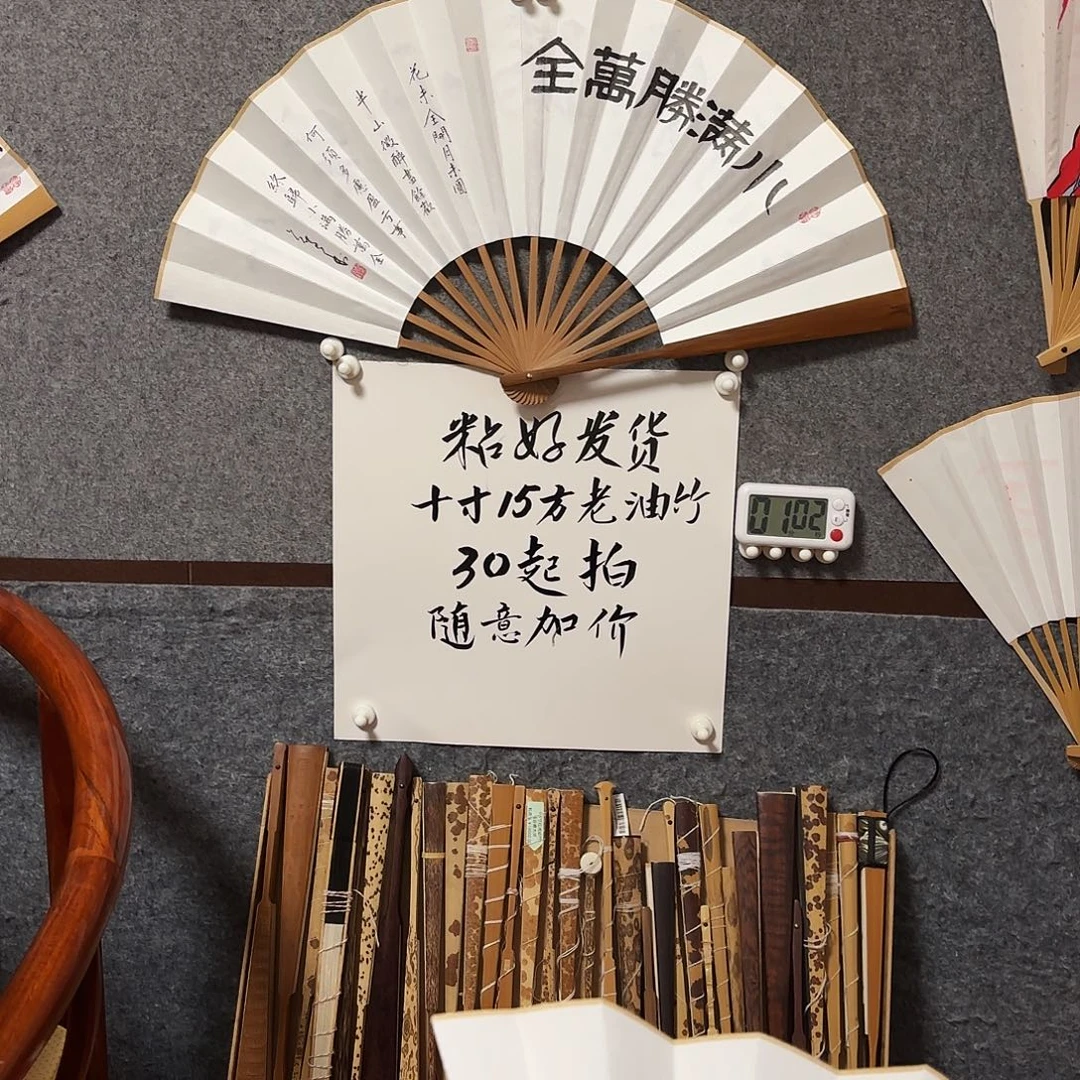 小满勝萬全
花未全開月未圓
半山微醉盡餘歡
何須多慮盈亏事
終歸小滿勝萬全
粘好发货
十寸15方老油竹
30起拍
随意加价
01:02